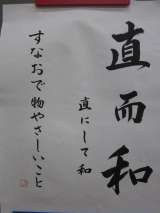 直而和
直にして和
すなおで物やさしいこと